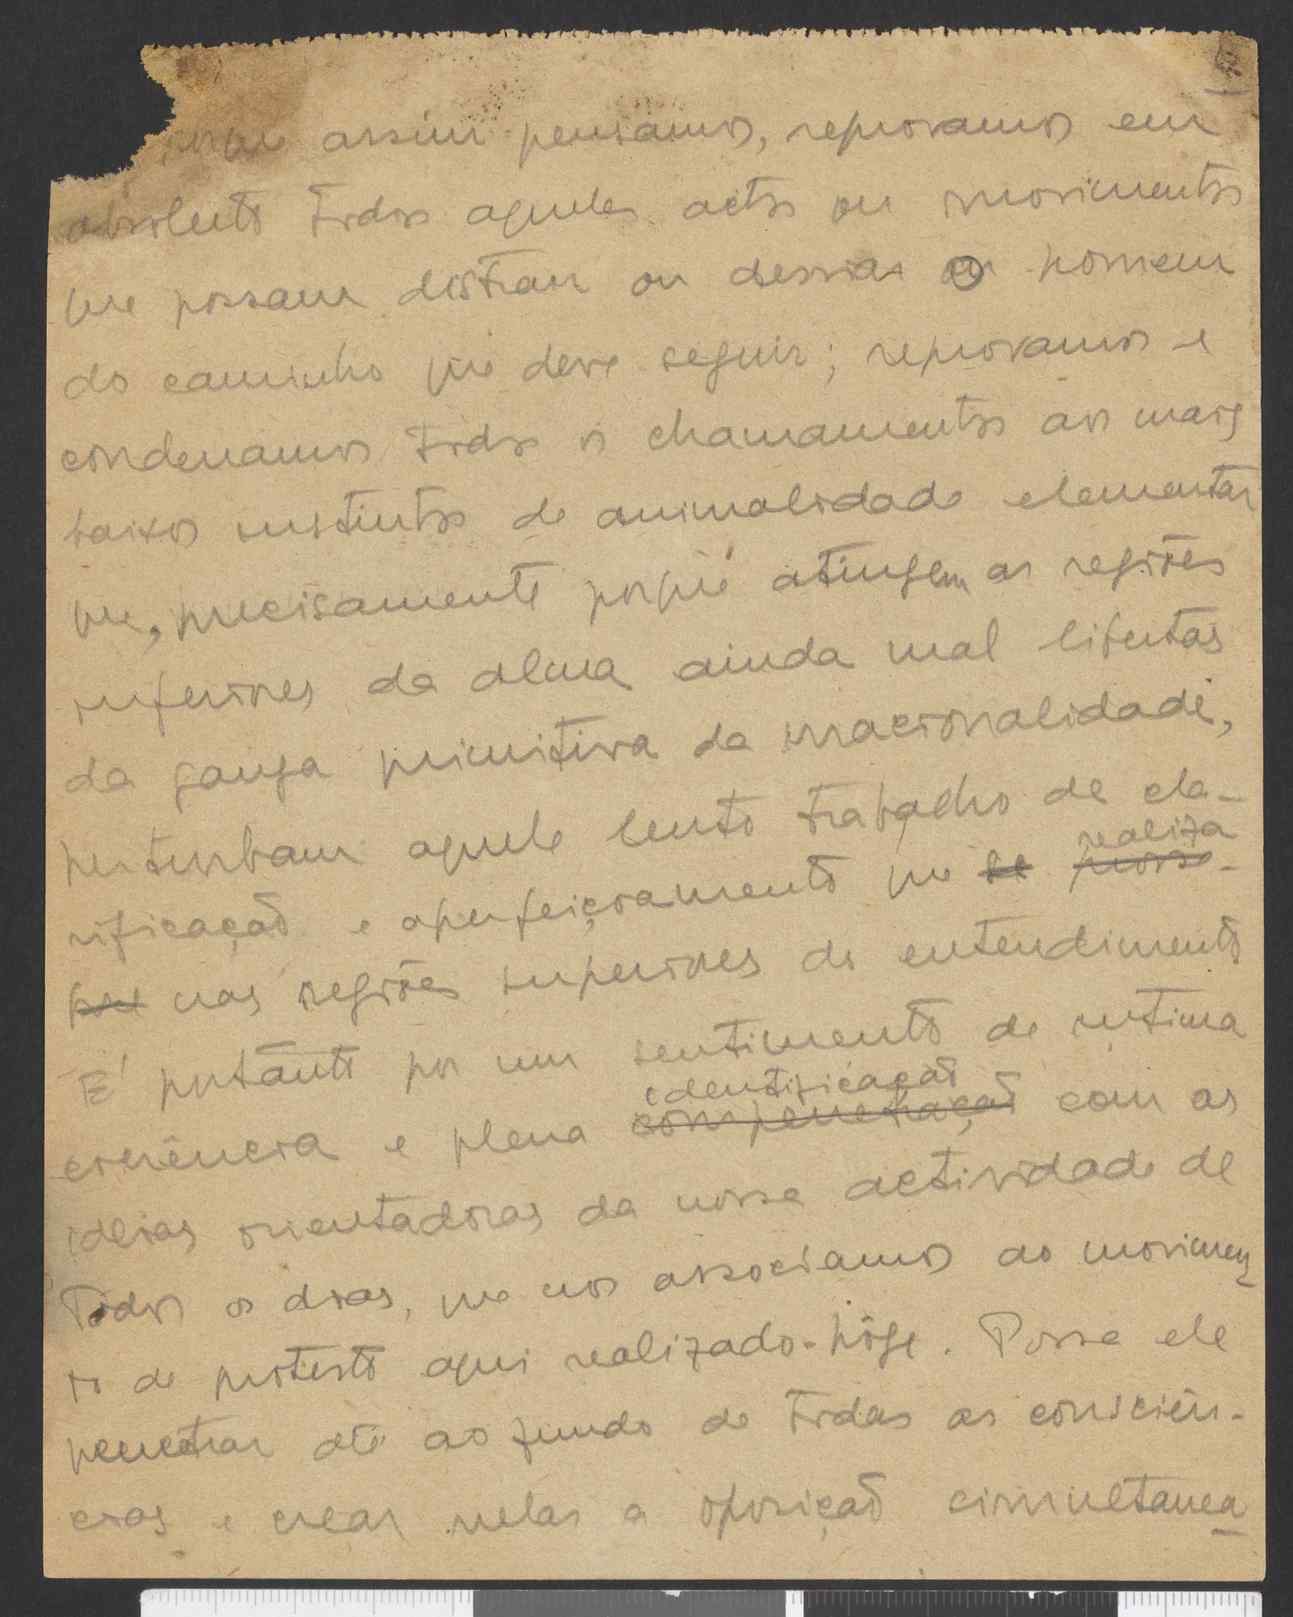 assim pensamos, reprovamos em
absoluto todos aqueles actos ou movimentos
que possam distrair ou desviar o homem
do caminho que deve seguir; reprovamos e
condenamos todos os chamamentos aos mais
baixos instintos de animalidade elementar
que, precisamente porque atingem as regiões
inferiores da alma ainda mal libertas
da ganga primitiva da irracionalidade,
perturbam aquele lento trabalho de cla-
realiza
rificação e aperfeiçoamento que se prosse-
gue nas regiões superiores do entendimento
É portanto por um sentimento de intima
identificação
coerência e plena compenetração com as
ideias orientadoras da nossa actividade de
todos os dias, que nos associamos ao movimen
to de protesto aqui realizado hôje. Possa ele
penetrar até ao fundo de todas as consciên-
cias e crear nelas a oposição simultanea